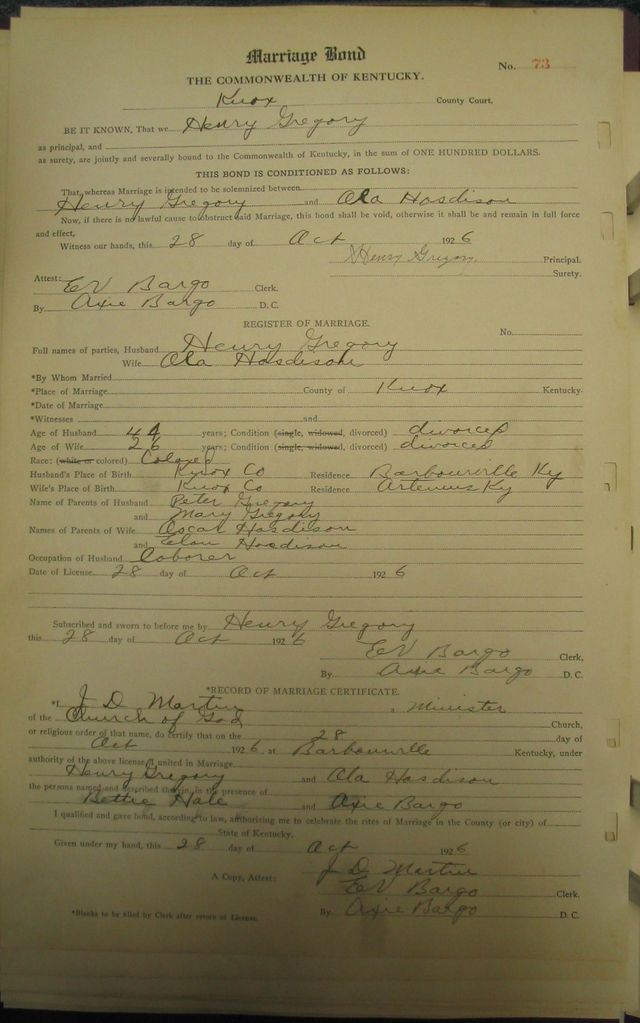 Marriage Bond
No. 73
THE COMMONWEALTH OF KENTUCKY.
Knox County Court,
BE IT KNOWN, That we Henry Gregory
as principal, and
as surety, are jointly and severally bound to the Commonwealth of Kentucky, in the sum of ONE HUNDRED DOLLARS.
THIS BOND IS CONDITIONED AS FOLLOWS:
That, whereas Marriage is intended to be solemnized between
Henry Gregory and Ola Hosdison
Now, if there is no lawful cause to obstruct said Marriage, this bond shall be void, otherwise it shall be and remain in full force
and effect,
Witness our hands, this 28 day of Oct 1926
Henry Gregory Principal.
Surety.
Attest: EV Bargo Clerk.
By Axie Bargo D. C.
REGISTER OF MARRIAGE.
No.
Full names of parties, Husband Henry Gregory
Wife Ola Hosdison
*By Whom Married
*Place of Marriage County of Knox Kentucky.
*Date of Marriage
*Witnesses and
Age of Husband 44 years; Condition (single, widowed, divorced) divorced
Age of Wife 26 years; Condition (single, widowed, divorced) divorced
Race: (white or colored) Colored
Husband's Place of Birth Knox Co Residence Barbourville Ky
Wife's Place of Birth Knox Co Residence Artemus Ky
Name of Parents of Husband Peter Gregory
and Mary Gregory
Names of Parents of Wife Oscar Hosdison
and Hosdison
Occupation of Husband Laborer
Date of License 28 day of Oct 1926
Subscribed and sworn to before me by Henry Gregory
this 28 day of Oct 1926
EV Bargo Clerk,
By Axie Bargo D. C.
*RECORD OF MARRIAGE CERTIFICATE.
*I J D Martin a Minister
of the Church of God Church,
or religious order of that name, do certify that on the 28 day of
Oct 1926, at Barbourville Kentucky, under
authority of the above license, I united in Marriage
Henry Gregory and Ola Hosdison
the persons named and described therein, in the presence of
Bettie Hale and Axie Bargo
I qualified and gave bond, according to law, authorising me to celebrate the rites of Marriage in the County (or city) of
State of Kentucky.
Given under my hand, this 28 day of Oct 1926
J D Martin
A Copy, Attest: EV Bargo Clerk.
By Axie Bargo D. C.
*Blanks to be filled by Clerk after return of License.